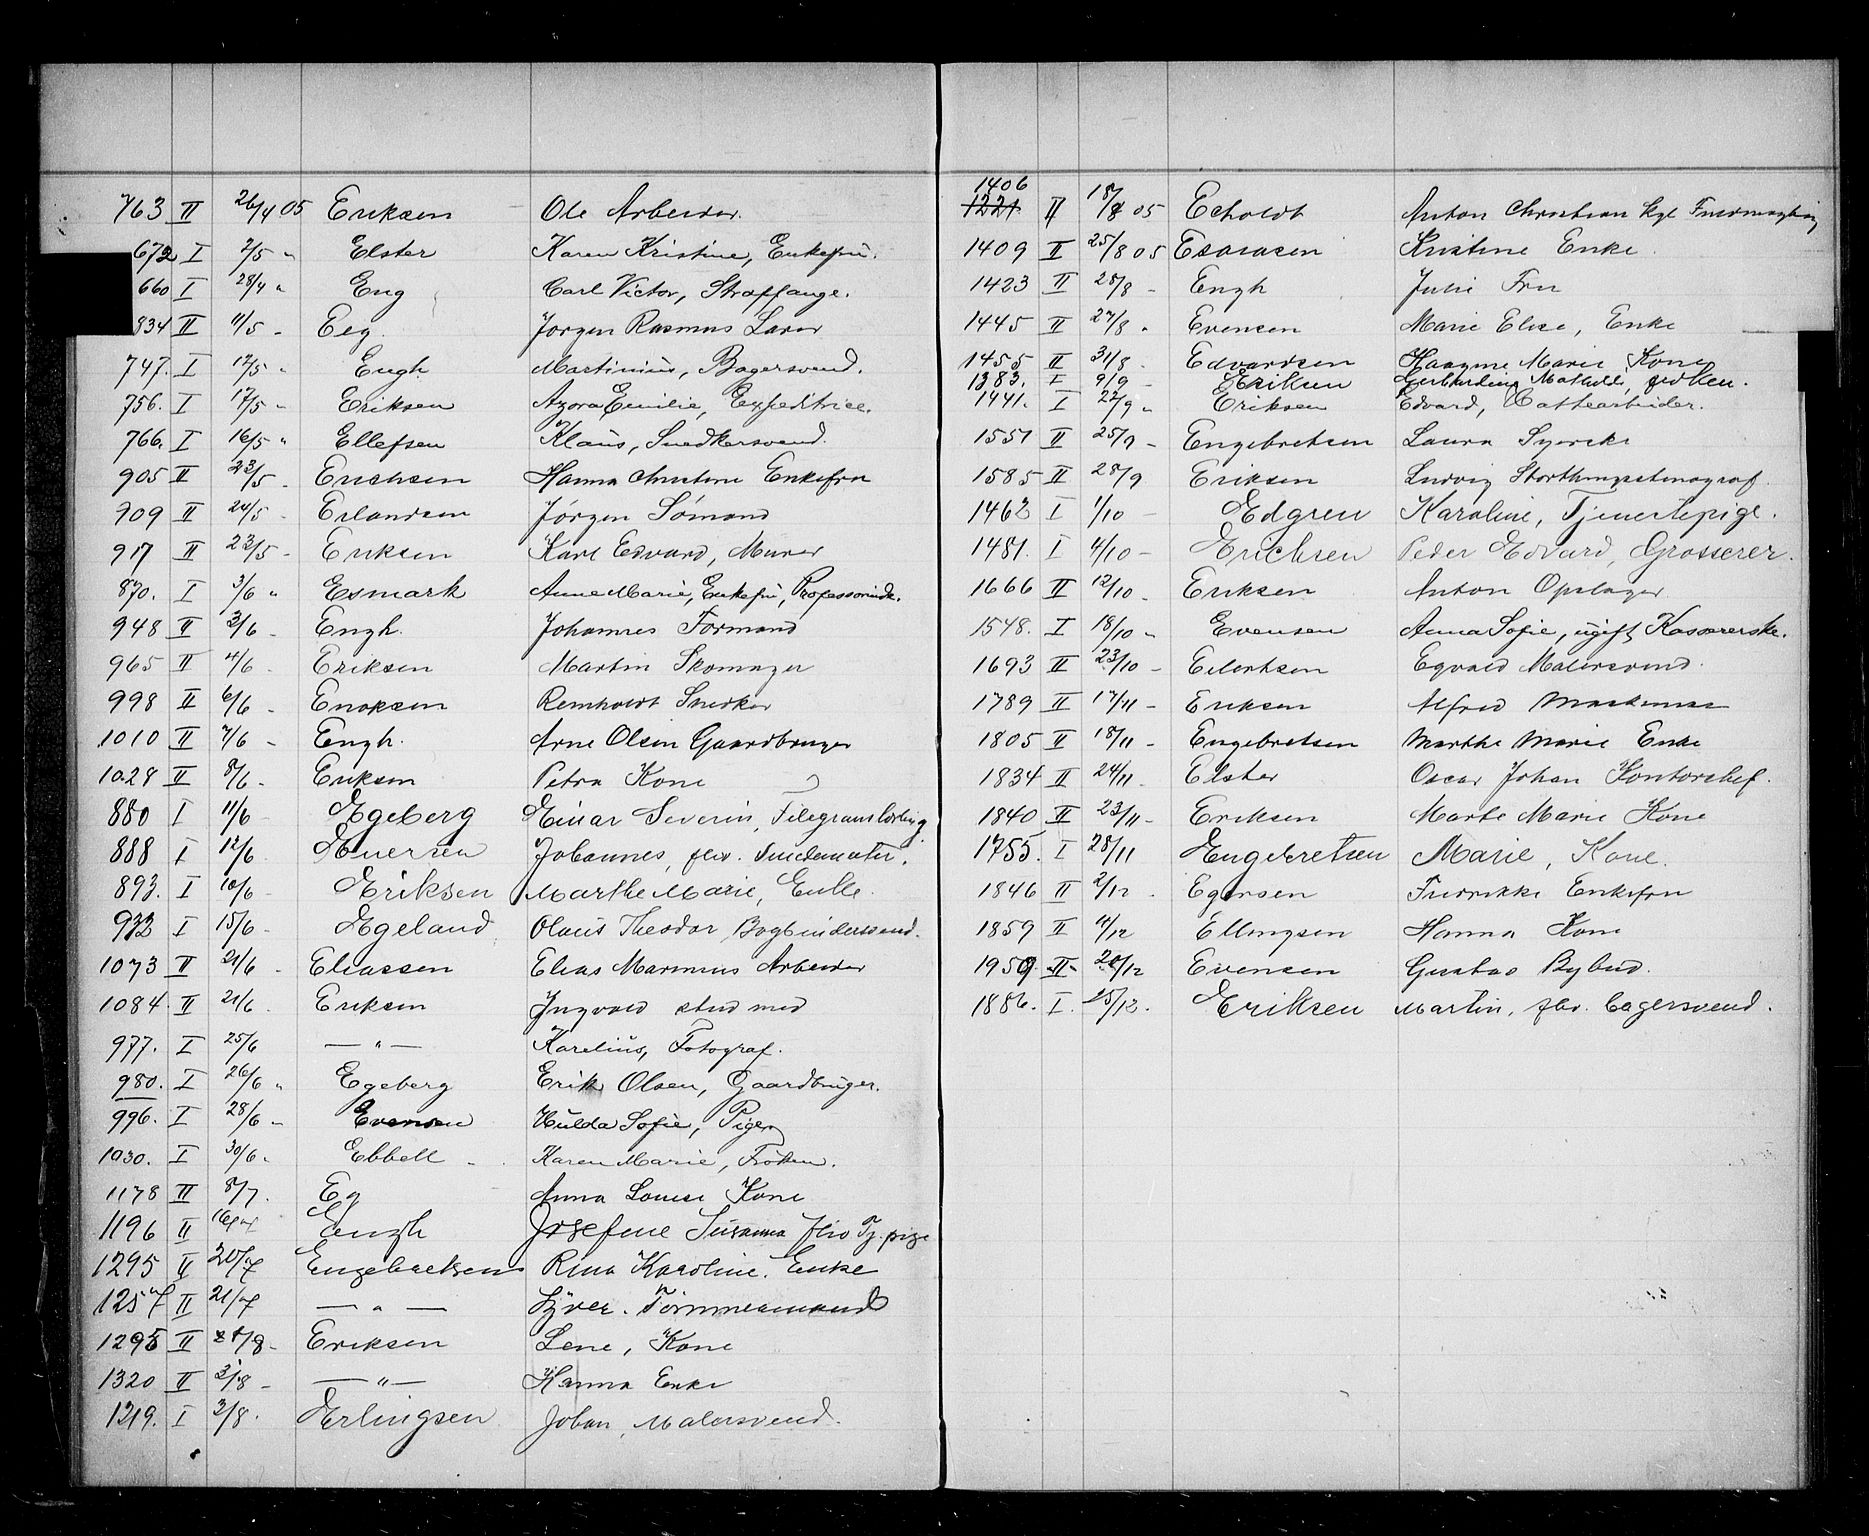 763 II 26/4 05 Eriksen Ole Arbeider.
672 I 2/5 " Elster Karen Kristine, Enkefru.
660 I 28/4 " Eng Carl Victor, Straffange.
834 II 11/5 - Eeg. Jørgen Rasmus Lærer
747. I 12/5 " Engh. Martinius, Bagersvend.
756. I 17/5 " Eriksen Agora Emilie, Expeditrice.
766. I 16/5 " Ellefsen Klaus, Snedkersvend.
905 II 23/5 - Erichsen Hanna Christine Enkefru
909 II 24/5 - Erlandsen Jørgen Sømand
917 II 23/5 - Eriksen Karl Edvard, Murer
870. I 3/6 " Esmark Anne Marie, Enkefru, Professorinde.
948 II 3/6 - Engh. Johannes Formand
965 II 4/6 - Eriksen Martin Skomager
998 II 6/6 - Enoksen Reinholdt Snedker
1010 II 7/6 - Engh. Arne Olsen Gaardbruger
1028 II 8/6 - Eriksen Petra Kone
880 I 11/6 - Egeberg Einar Severin, Telegramlørling
888 I 12/6 Johannes, flv. Snedemater.
893. I 10/6 - Eriksen Marthe Marie, Enke.
932 I 15/6 - Egeland Olaus Theodor Bogbindersvend.
1073 II 21/6 - Eliassen Elias Marinius Arbeider
1084 II 21/6 Eriksen Ingvald stud med
977. I 25/6 — " — Karelius, Fotograf.
980. I 26/6 " Egeberg Erik Olsen, Gaardbruger.
996. I 28/6 - Evensen Hulda Sofie, Pige
1030. I 30/6 " Ebbell - Karen Marie, Frøken.
1178 II 8/7. Eg Anna Louise Kone
1196 II 16/7 Engh Josefine Susanna flv Tj. pige
1295 II 20/7 Engebretsen Rina Karoline. Enke
1257 II 21/7 — " — Syver. Tømmermand
1295 II /8 - Eriksen Lene, Kone
1320 II 2/8 - — " — Hanna Enke
1219. I 3/8. Erlingsen Johan, Malersvend.
1406
1221 II 18/8 05 Echoldt Anton Christian kgl Fuldmægtig
1409 II 25/8 05 Esaiasen Kristine Enke.
1423 II 28/8 - Engh Julie Fru
1445 II 27/8 " Evensen Marie Elise, Enke
1455 II 31/8 - Edvardsen Haagine Marie Kone
1383. I 9/9 - Eriksen Gerhardine Mathilde, frøken.
1441. I 22/9 " Eriksen Edvard, Malterarbeider.
1551 II 25/9 - Engebretsen Laura Syerske
1585 II 28/9 Eriksen Ludvig Storthingsstenograf.
1462 I 1/10 - Edgren Karoline, Tjenestepige.
1481. I 4/10 - Erichsen Peder Edvard, Grosserer.
1666 II 12/10 - Eriksen Anton Opslager
1548. I 18/10 " Evensen Anna Sofie, ugift Kassererske.
1693 II 23/10 - Eilertsen Egvald Malersvend.
1789 II 17/11 - Eriksen Alfred Maskinist
1805 II 18/11 - Engebretsen Marthe Marie Enke
1834 II 24/11 Elster Oscar Johan Kontorchef.
1840 II 23/11 - Eriksen Marte Marie Kone
1755. I 28/11 Engebretsen Marie, Kone.
1846 II 2/12 - Egersen Fredrikke Enkefru
1859 II 4/12 Ellingsen Hanna Kone
1959 II 20/12 Evensen Gustav Bybud.
1886. I. 25/12. Eriksen Martin, flv. bagersvend.